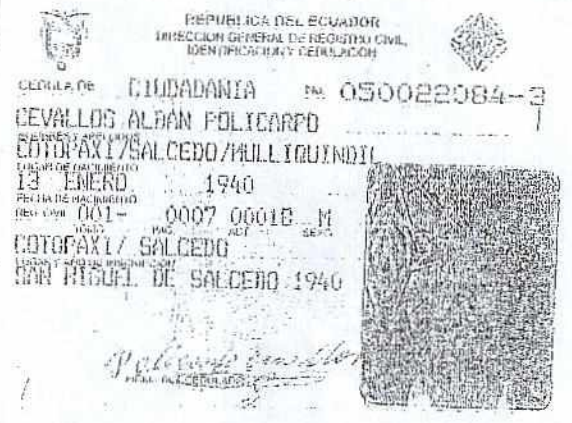 REPUBLICA DEL ECUADOR
DIRECCION GENERAL DE REGISTRO CIVIL,
IDENTIFICACION Y CEDULACION
CEDULA DE CIUDADANIA No. 050022084-3
CEVALLOS ALBAN POLICARPO
NOMBRES Y APELLIDOS
COTOPAXI/SALCEDO/MULLIQUINDIL
LUGAR DE NACIMIENTO
13 ENERO 1940
FECHA DE NACIMIENTO
REG. CIVIL 001- 0007 00018 M
TOMO PAG. ACT. SEXO
COTOPAXI/ SALCEDO
LUGAR Y AÑO DE INSCRIPCION
SAN MIGUEL DE SALCEDO 1940
Policarpo Cevallos
FIRMA DEL CEDULADO